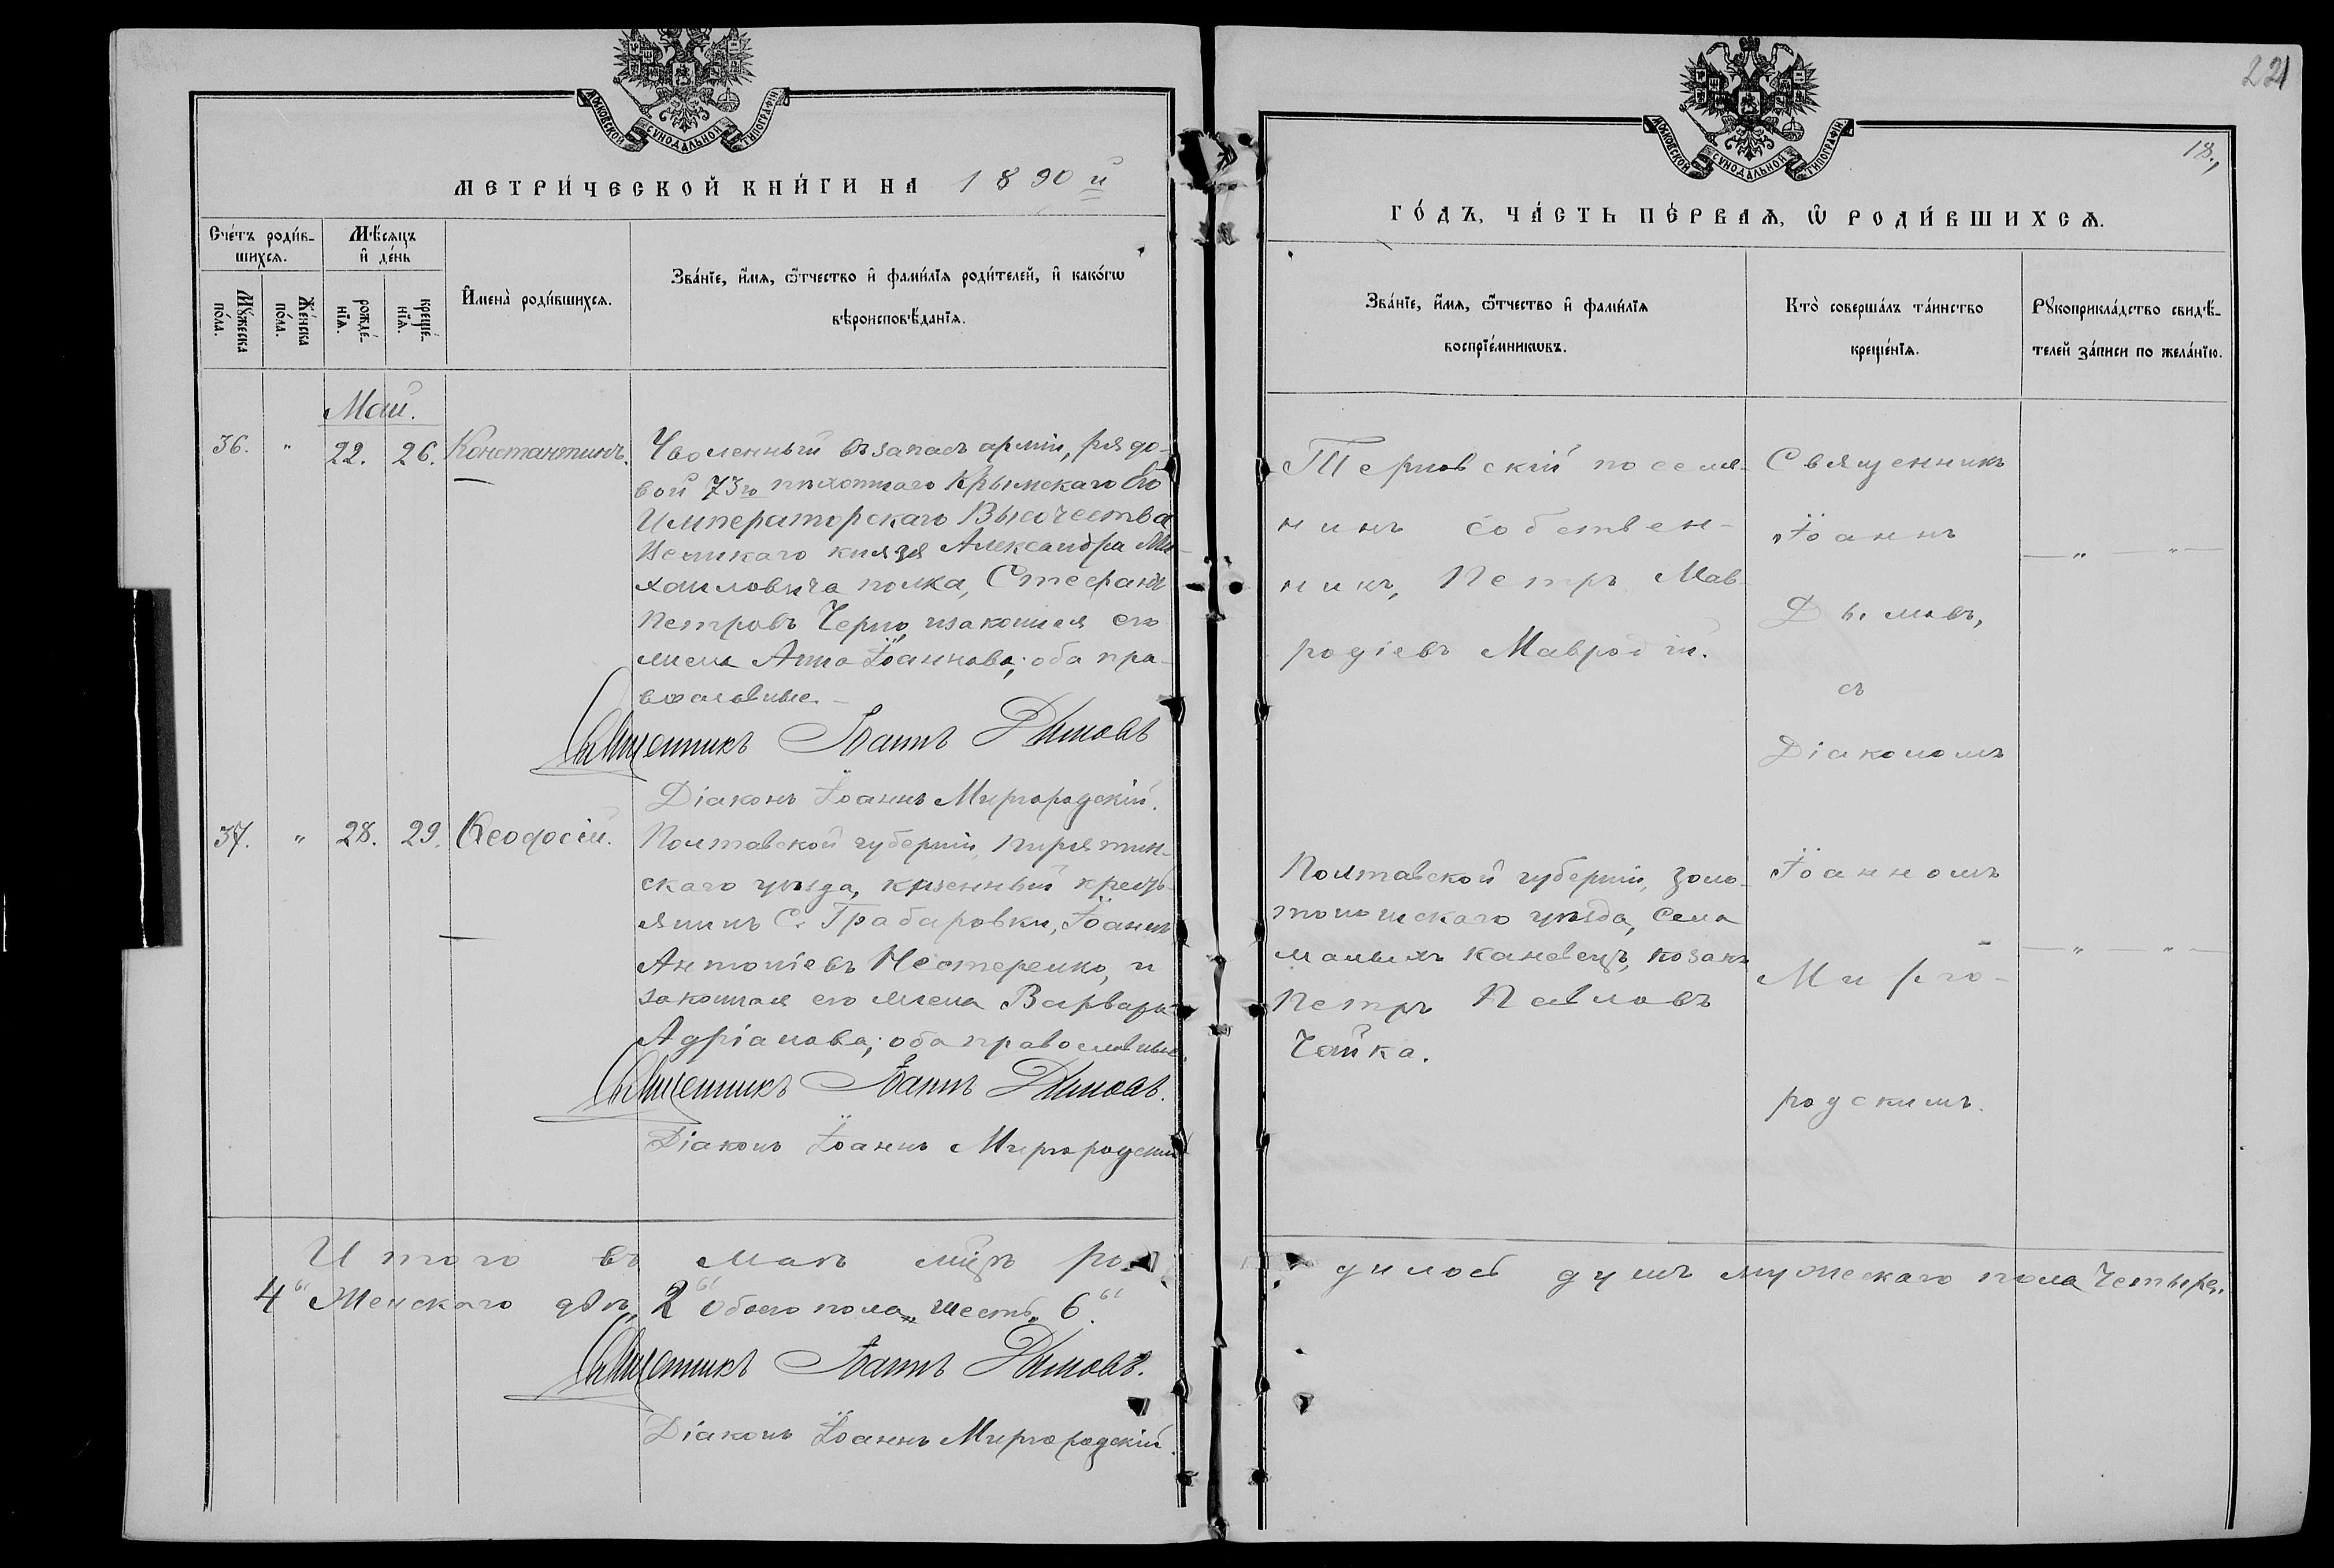 МОСКОВСКОЙ СѴНОДАЛЬНОЙ ТИПОГРАФІИ
МЕТРИ́ЧЕСКОЙ КНИ́ГИ НА 1890й
Сче́тъ роди́в-
шихсѧ.
Мѣ́сѧцъ
и҆ де́нь
Мꙋ́жеска
по́ла.
Же́нска
по́ла.
рожде́-
нїѧ.
креще́-
нїѧ.
И҆мена̀ роди́вшихсѧ.
Зва́нїе, и҆́мѧ, ѻ҆́тчество и҆ фами́лїѧ роди́телей, и҆ како́гѡ
вѣроисповѣ́данїѧ.
Май.
36. " 22. 26. Константинъ.
Уволенный въ запасъ арміи, рядо-
вой 73го пѣхотнаго Крымскаго Его
Императорскаго Высочества
Великаго князя Александра Ми-
хаиловича полка, Стефанъ
Петровъ Черно изаконная его
жена Анна Іоаннова; оба пра-
вославные.
Священникъ Іоаннъ Дымовъ
Діаконъ Іоаннъ Миргородскій.
37. " 28. 29. Ѳеодосій.
Полтавской губерніи, Пирятин-
скаго уѣзда, казенный кресть-
янинъ С. Грабаровки, Іоаннъ
Антоніевъ Нестеренко, и
законная его жена Варвара
Адріанова; оба православные.
Священникъ Іоаннъ Дымовъ.
Діаконъ Іоаннъ Миргородскій
Итого въ маѣ мцѣ ро-
4" Женскаго двѣ„ 2" Обоего пола„ шесть„ 6."
Священникъ Іоаннъ Дымовъ.
Діаконъ Іоаннъ Миргородскій.
221
18.,
МОСКОВСКОЙ СѴНОДАЛЬНОЙ ТИПОГРАФІИ
ГО́ДЪ, ЧА́СТЬ ПЕ́РВАѦ, Ѡ҆ РОДИ́ВШИХСѦ.
Зва́нїе, и҆́мѧ, ѻ҆́тчество и҆ фами́лїѧ
воспрїе́мникѡвъ.
Кто̀ соверша́лъ та́инство
креще́нїѧ.
Рꙋкоприкла́дство свидѣ́-
телей за́писи по жела́нїю.
Терновскій поселя-
нинъ собствен-
никъ, Петръ Мав-
родіевъ Мавродій.
Священникъ
Іоаннъ
Дымовъ,
съ
Діакономъ
— " — " —
Полтавской губерніи, Золо-
тоношскаго уѣзда, Села
малыхъ Каневецъ, козакъ
Петръ Павловъ
Чайка.
Іоанномъ
Мирго-
родскимъ.
— " — " —
дилось душъ мужескаго пола Четыре„